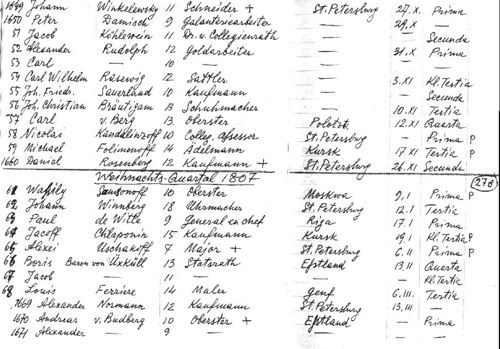 1649 Johann Winkelewsky 11 Schneider + St. Petersburg 27.X Prima
1650 Peter Damisch 9 Galanteriearbeiter — 29.X —
51 Jacob Köhlewein 11 Dr. u. Collegienrath — — Secunda
52 Alexander Rudolph 12 Goldarbeiter — 31.X Prima
53 Carl — 10 — — — —
54 Carl Wilhelm Räsewig 12 Sattler — 3.XI Kl. Tertia
55 Joh. Friedr. Sauerland 10 Kaufmann — — Secunda
56 Joh. Christian Bräutigam 13 Schuhmacher — 10.XI Tertia
57 Carl v. Berg 13 Oberster Polotzk 12.XI Quarta
58 Nicolai Kandalinzoff 10 Colleg. Assessor St. Petersburg — Prima P
59 Michael Folimonoff 14 Edelmann Kursk 17.XI Tertia P
1660 Daniel Rosenberg 12 Kaufmann + St. Petersburg 26.XI Secunda
Weihnachts-Quartal 1807 (278)
61 Wassily Samsonoff 10 Oberster Moskwa 9.1 Prima P
62 Johann Winnberg 18 Uhrmacher St. Petersburg 12.1 Tertia
63 Paul de Witte 9 General en chef Riga 17.1 Prima
64 Jacoff Chlaponin 15 Kaufmann Kursk 19.1 Kl. Tertia P
65 Alexei Uschakoff 7 Major + St. Petersburg 6.11 Prima P
66 Boris Baron von Üxküll 13 Statsrath Esstland 13.11 Quarta
67 Jacob — 11 — — — Kl. Tertia
68 Louis Ferriere 14 Maler Genf 6.III. Tertia
1669 Alexander Normann 12 Kaufmann St. Petersburg 13.III —
1670 Andreas v. Budberg 10 Oberster + Esstland — Prima
1671 Alexander — 9 — — — —